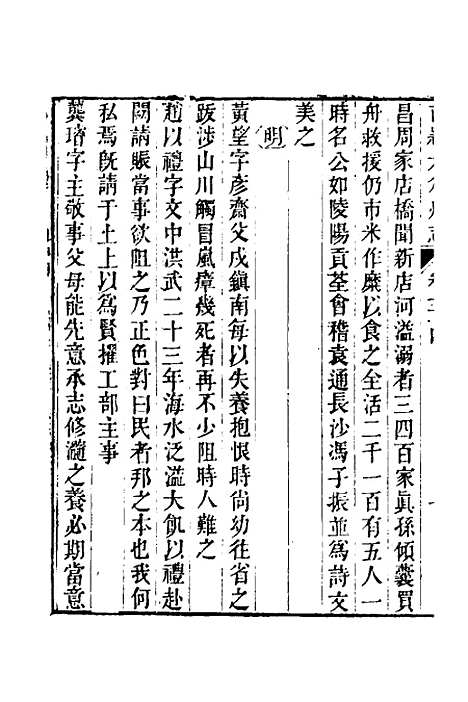 昌周家店橋聞新店河溢溺者三四百家眞孫傾囊買
舟救援仍市米作糜以食之全活二千一百有五人一
時名公如陵陽貢荃會稽袁通長沙馮子振並爲詩文
美之
明
黃望字彥齋父戍鎮南每以失養抱恨時尚幼往省之
跋涉山川觸冒嵐瘴幾死者再不少阻時人難之
趙以禮字文中洪武二十三年海水泛溢大飢以禮赴
闕請賑當事欲阻之乃正色對曰民者邦之本也我何
私焉旣請于上上以爲賢擢工部主事
龔瑨字主敬事父母能先意承志修瀡之養必期當意